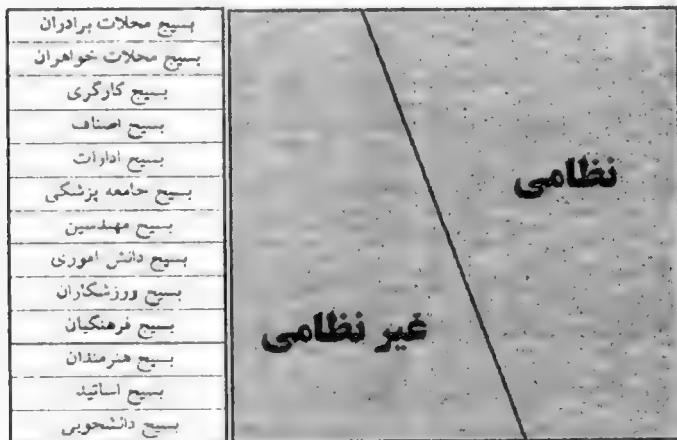 بسیج محلات برادران
بسیج محلات خواهران
بسیج کارگری
بسیج اصناف
بسیج ادارات
بسیج جامعه پزشکی
بسیج مهندسین
بسیج دانش اموزی
بسیج ورزشکاران
بسیج فرهنگیان
بسیج هنرمندان
بسیج اساتید
بسیج دانشجویی
نظامی
غیر نظامی